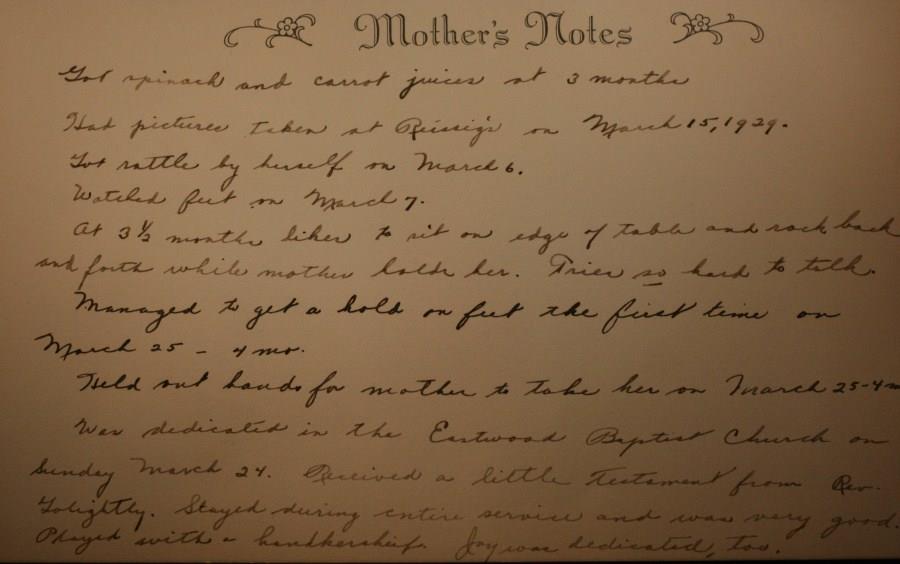 Mother's Notes
Got spinach and carrot juices at 3 months
Had pictures taken at Reissig's on March 15, 1929.
Got rattle by herself on March 6.
Watched feet on March 7.
At 3 1/2 months likes to sit on edge of table and rock back
and forth while mother holds her. Tries so hard to talk.
Managed to get a hold on feet the first time on
March 25 - 4 mo.
Held out hands for mother to take her on March 25-4 m
Was dedicated in the Eastwood Baptist Church on
Sunday March 24. Received a little Testament from Rev.
Golightly. Stayed during entire service and was very good.
Played with a handkerchief. Joy was dedicated, too.